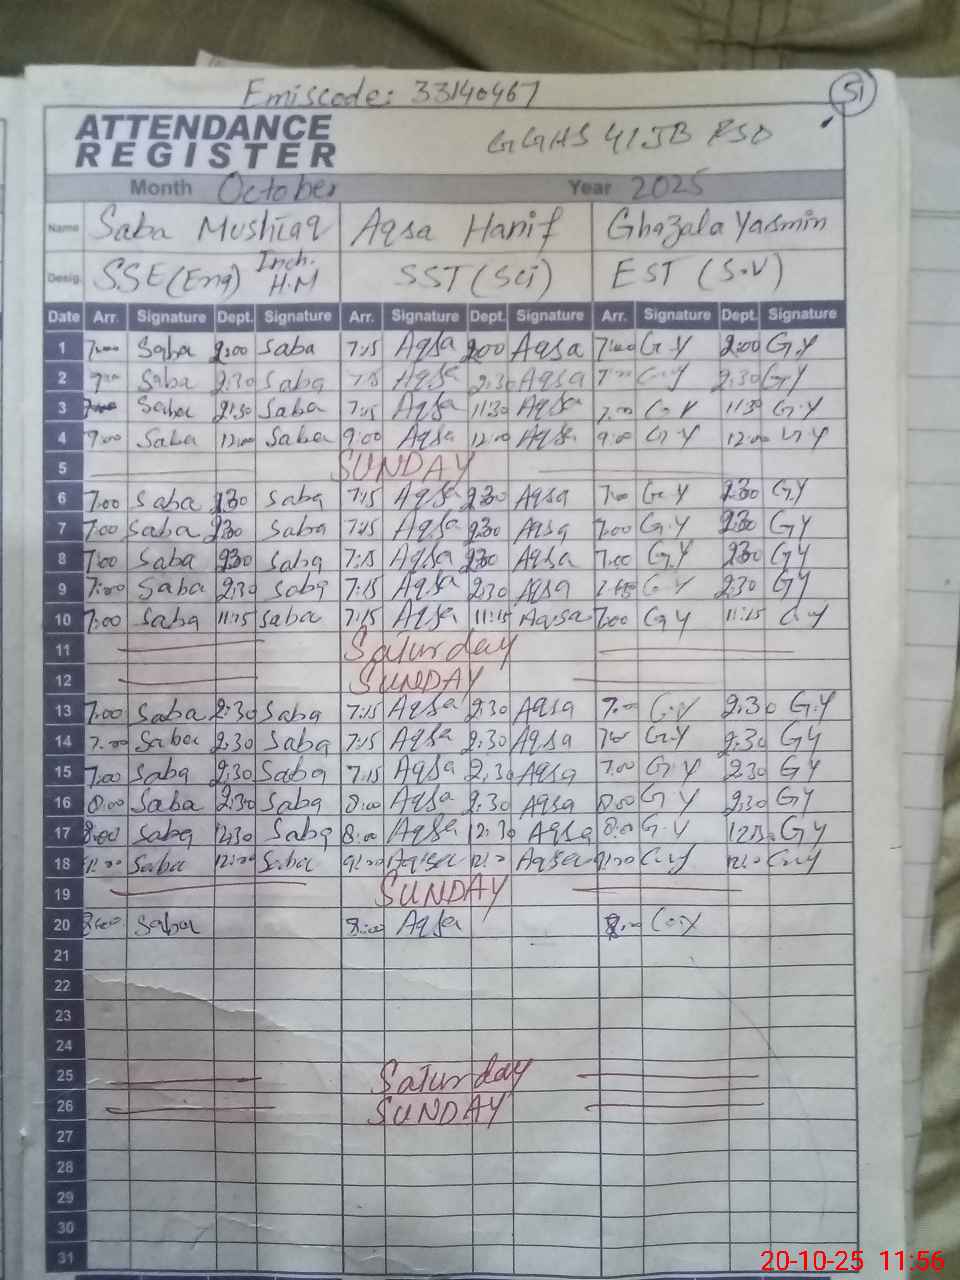 Emiscode: 33140467
51
ATTENDANCE REGISTER
GGHS 41JB FSD
Month October Year 2025
Name Saba Mushtaq Aqsa Hanif Ghazala Yasmin
Desig. SSE(Eng) Inch. H.M SST(Sci) EST (S.V)
Date Arr. Signature Dept. Signature Arr. Signature Dept. Signature Arr. Signature Dept. Signature
1 7:00 Saba 2:00 Saba 7:15 Aqsa 2:00 Aqsa 7:00 G.Y 2:00 G.Y
2 7:00 Saba 2:30 Saba 7:15 Aqsa 2:30 Aqsa 7:00 G.Y 2:30 G.Y
3 Saba Saba 7:15 Aqsa 11:30 Aqsa 7:00 G.Y 11:30 G.Y
4 9:00 Saba 12:00 Saba 9:00 Aqsa 12:00 Aqsa 9:00 G.Y 12:00 G.Y
5 SUNDAY
6 7:00 Saba 2:30 Saba 7:15 Aqsa 2:30 Aqsa 7:00 G.Y 2:30 G.Y
7 7:00 Saba 2:30 Saba 7:15 Aqsa 2:30 Aqsa 7:00 G.Y 2:30 GY
8 7:00 Saba 2:30 Saba 7:15 Aqsa 2:30 Aqsa 7:00 G.Y 2:30 GY
9 7:00 Saba 2:30 Saba 7:15 Aqsa 2:30 Aqsa G.Y 2:30 GY
10 7:00 Saba 11:15 Saba 7:15 Aqsa 11:15 Aqsa 7:00 GY 11:15 GY
11 Saturday
12 SUNDAY
13 7:00 Saba 2:30 Saba 7:15 Aqsa 2:30 Aqsa 7:00 G.Y 2:30 G.Y
14 7:00 Saba 2:30 Saba 7:15 Aqsa 2:30 Aqsa 7:00 G.Y 2:30 GY
15 7:00 Saba 2:30 Saba 7:15 Aqsa 2:30 Aqsa 7:00 G.Y 2:30 GY
16 8:00 Saba 2:30 Saba 8:00 Aqsa 2:30 Aqsa 8:00 G.Y 2:30 GY
17 8:00 Saba 12:30 Saba 8:00 Aqsa 12:30 Aqsa 8:00 G.Y GY
18 Saba 12:00 Saba Aqsa Aqsa G.Y G.Y
19 SUNDAY
20 8:00 Saba 8:00 Aqsa 8:00 G.Y
21
22
23
24
25 Saturday
26 SUNDAY
27
28
29
30
31
20-10-25 11:56